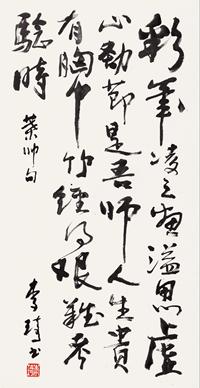 彩筆凌云畫溢思虛
心勁節是吾師人生貴
有胸中竹經得艱難考
驗時
葉帥句
李琦書